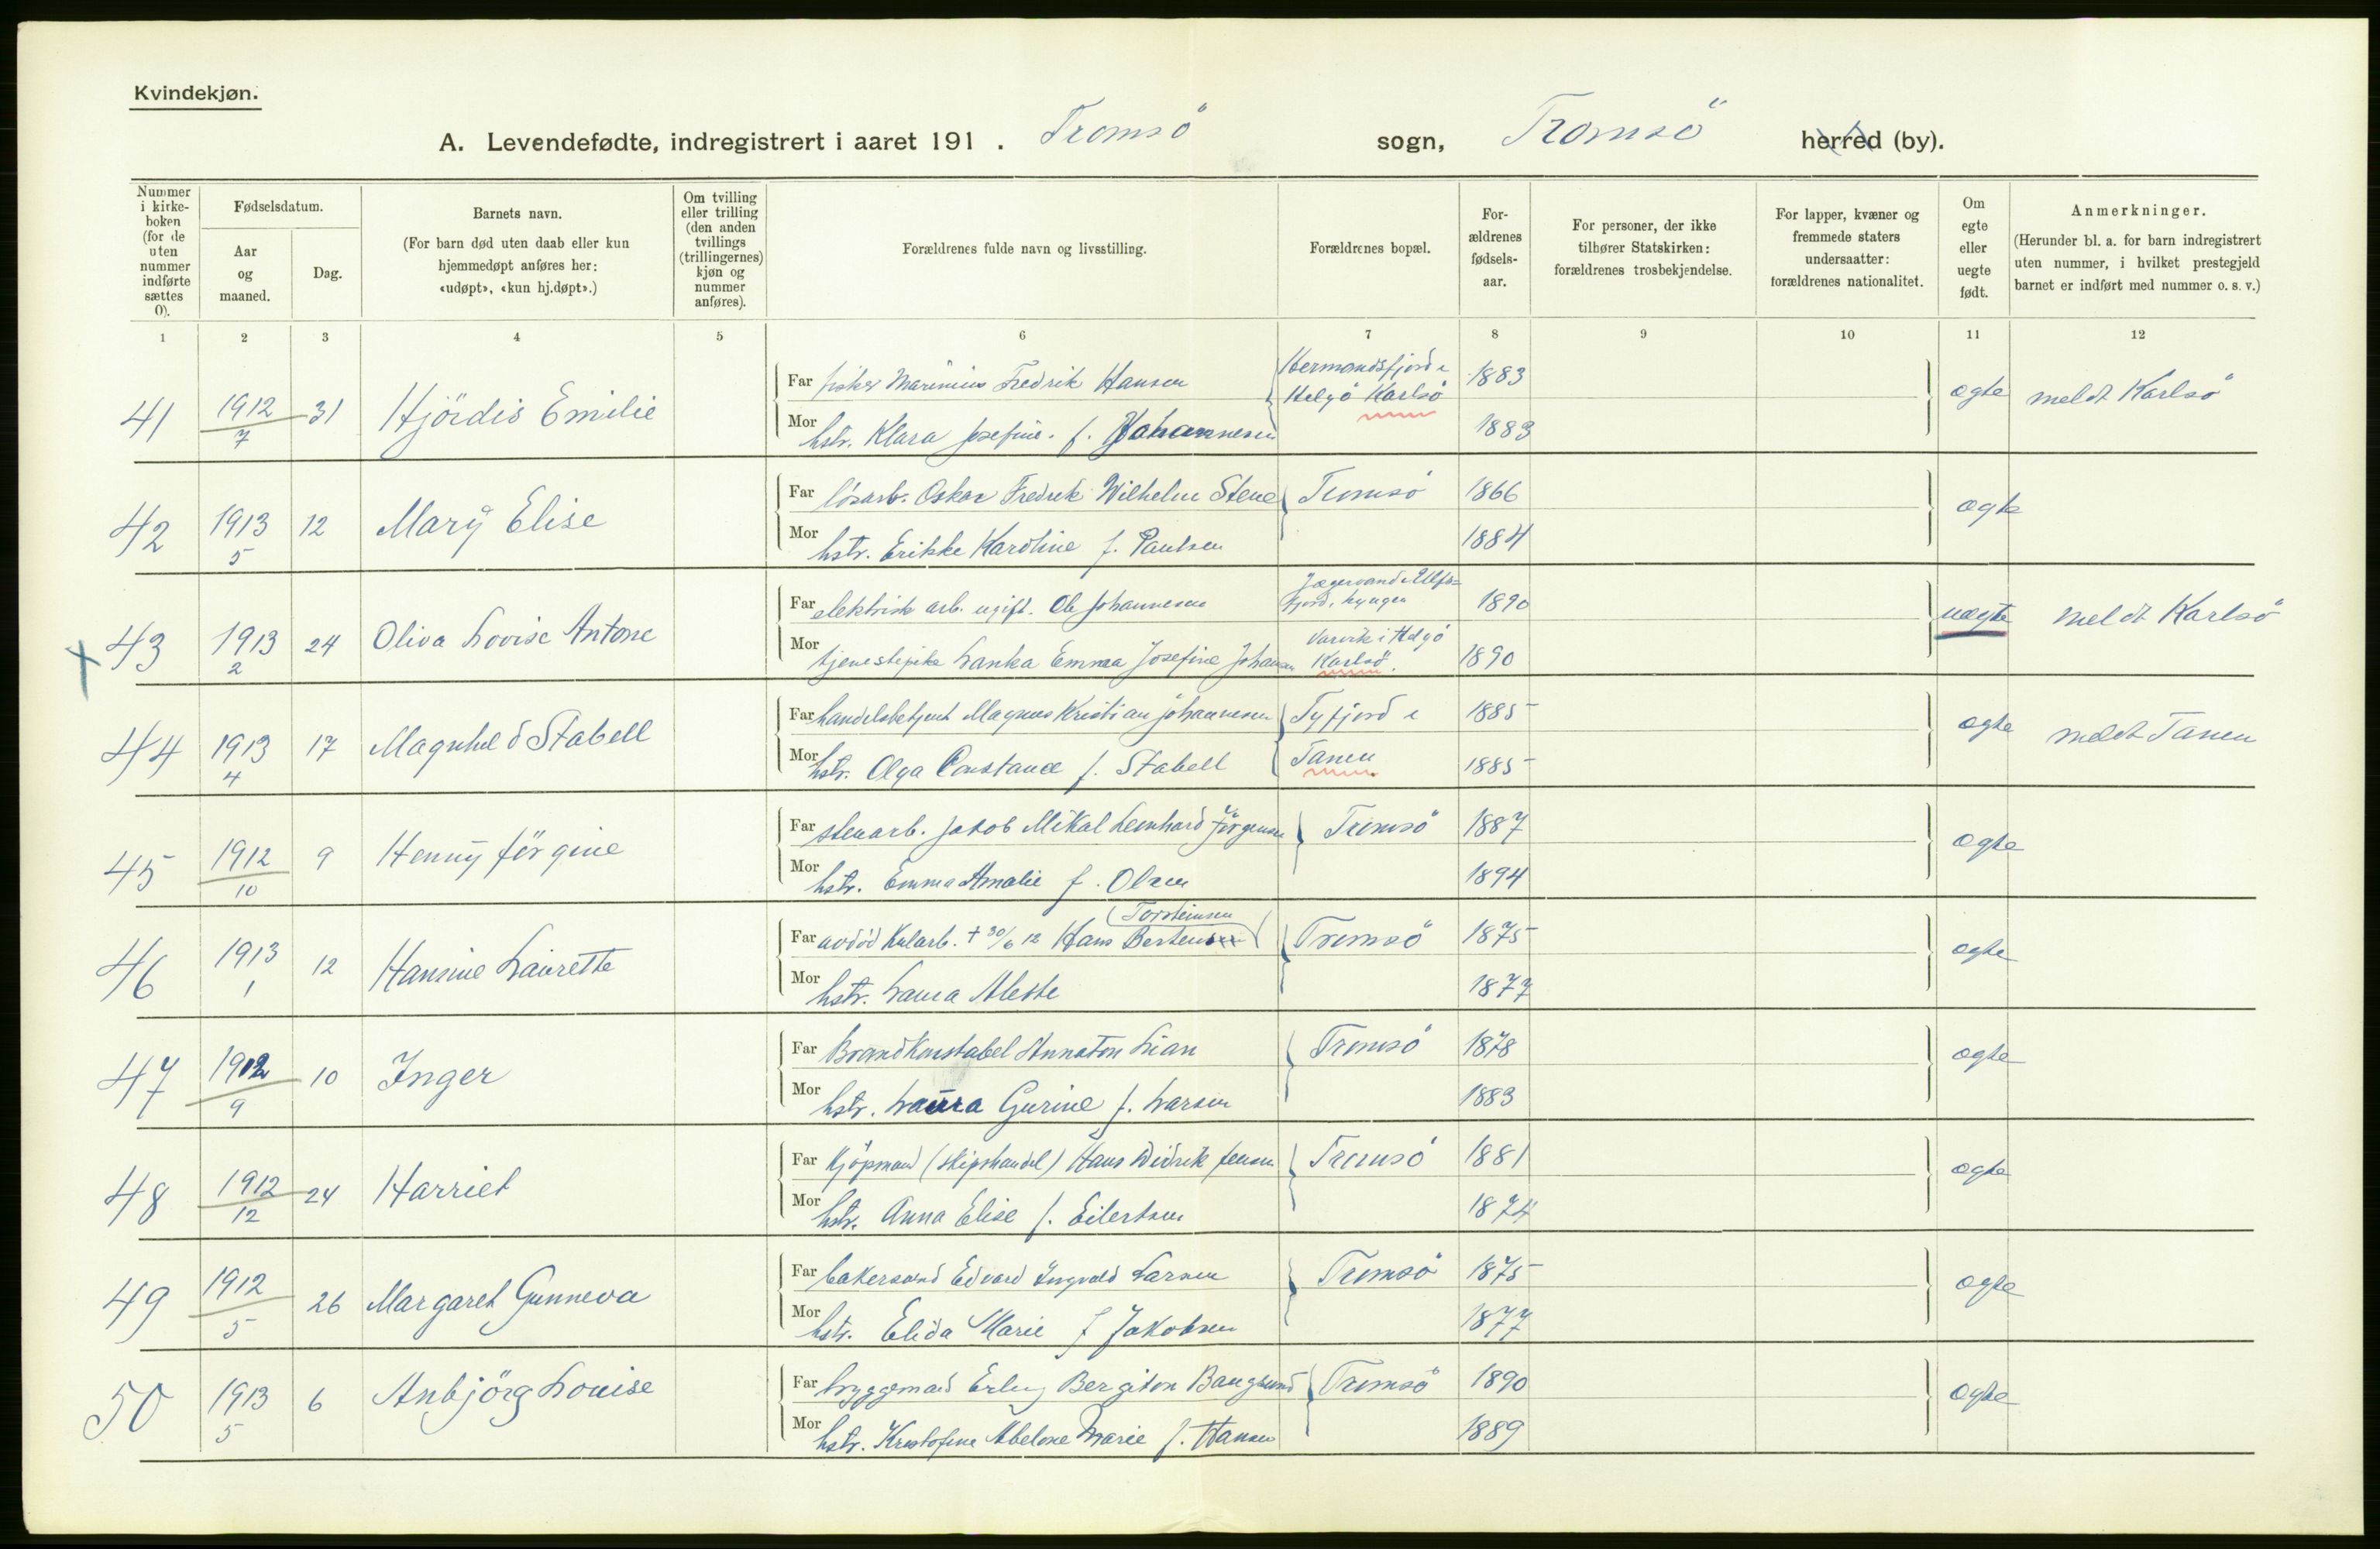 Kvindekjøn.
A. Levendefødte, indregistrert i aaret 191 . Tromsö sogn, Tromsö herred (by).
Nummer i kirke-boken (for de uten nummer indførte sættes 0).
Fødselsdatum.
Aar og maaned.
Dag.
Barnets navn.
(For barn død uten daab eller kun hjemmedøpt anføres her: «udøpt», «kun hj.døpt».)
Om tvilling eller trilling (den anden tvillings (trillingernes) kjøn og nummer anføres).
Forældrenes fulde navn og livsstilling.
Forældrenes bopæl.
For-ældrenes fødsels-aar.
For personer, der ikke tilhører Statskirken: forældrenes trosbekjendelse.
For lapper, kvæner og fremmede staters undersaatter: forældrenes nationalitet.
Om egte eller uegte født.
Anmerkninger.
(Herunder bl. a. for barn indregistrert uten nummer, i hvilket prestegjeld barnet er indført med nummer o. s. v.)
1 2 3 4 5 6 7 8 9 10 11 12
41 1912 7 31 Hjördis Emilie
Far fisker Marinius Fredrik Hansen Hermandsfjord i Helgö Karlsö 1883 ægte meldt Karlsö
Mor hstr. Klara Josefine f. Johannesen 1883
42 1913 5 12 Mary Elise
Far lösarb. Oskar Fredrik Wilhelm Stene Tromsö 1866 ægte
Mor hstr. Erikke Karoline f. Paulsen 1884
43 1913 2 24 Oliva Lovise Antone
Far elektrisk arb. ugift. Ole Johannesen Jægervand i Ulfs=fjord, Lyngen 1890 uægte meldt Karlsö
Mor tjenestepike Lanka Emma Josefine Johansen i Helgö Karlsö. 1890
44 1913 4 17 Magnhild Stabell
Far handelsbetjent Magnus Kristian Johannesen Tyfjord i Tanen 1885 ægte meldt Tanen
Mor hstr. Olga Constance f. Stabell 1885
45 1912 10 9 Henny Jörgine
Far stenarb. Jakob Mikal Leonhard Jörgensen Tromsö 1887 ægte
Mor hstr. Emma Amalie f. Olsen 1894
46 1913 1 12 Hansine Laurette
(Torsteinsen)
Far avdöd Kularb. + 30/6 12 Hans Bertensen Tromsö 1875 ægte
Mor hstr. Laura Aleste 1877
47 1912 9 10 Inger
Far Brandkonstabel Annaton Lian Tromsö 1878 ægte
Mor hstr. Laura Gurine f. Larsen 1883
48 1912 12 24 Harriet
Far Kjöpmand (skipshandel) Hans Didrik Jensen Tromsö 1881 ægte
Mor hstr. Anna Elise f. Eilertsen 1874
49 1912 5 26 Margaret Gunneva
Far bakersvend Edvard Ingvald Larsen Tromsö 1875 ægte
Mor hstr. Elida Marie f Jakobsen 1877
50 1913 5 6 Anbjörg Louise
Far bryggemand Erling Bergiton Bangsund Tromsö 1890 ægte
Mor hstr. Kristofine Abelone Marie f. Hansen 1889